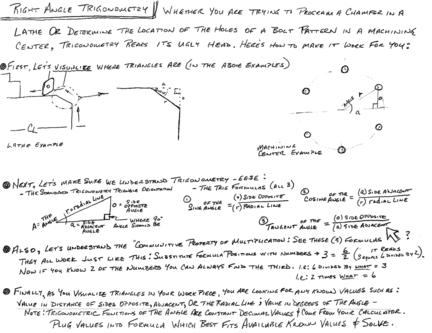 Right Angle Trigonometry
Whether you are trying to program a chamfer in a
lathe or determine the location of the holes of a bolt pattern in a machining
center, trigonometry rears its ugly head. Here's how to make it work for you:
First, let's visualize where triangles are (in the above examples)
CL
Lathe Example
Machining
Center Example
Next, let's make sure we understand trigonometry-ese:
- The standard trigonometry triangle definition
- The trig formulas (all 3)
A = Angle
r = radial line
o = side
opposite
angle
a = side
adjacent
angle
where 90°
angle should be
1 of the sine angle = (o) side opposite / (r) radial line
2 of the cosine angle = (a) side adjacent / (r) radial line
3 of the tangent of the angle = (o) side opposite / (a) side adjacent
Also, let's understand the "Communitive Property of Multiplication": See these (3) formulas?
They all work just like this: Substitute formula positions with numbers → 3 = 6/2 (it reads 3 equals 6 divided by 2)
Now if you know 2 of the numbers you can always find the third. i.e: 6 divided by what = 3
i.e: 2 times what = 6
Finally, as you visualize triangles in your work piece, you are looking for any known values such as:
Value in distance of sides opposite, adjacent, or the radial line; value in degrees of the angle -
Note: Trigonometric functions of the angle are constant decimal values & come from your calculator.
Plug values into formula which best fits available known values & solve.